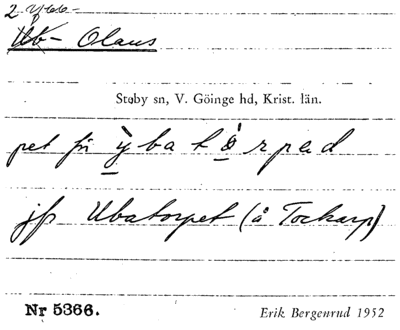 2 Ybb-
Ub- Olaus
Stoby sn, V. Göinge hd, Krist. län.
pet fr ỳbatòrpad
jfr Ubatorpet (å Tockarp)
Nr 5366.
Erik Bergenrud 1952